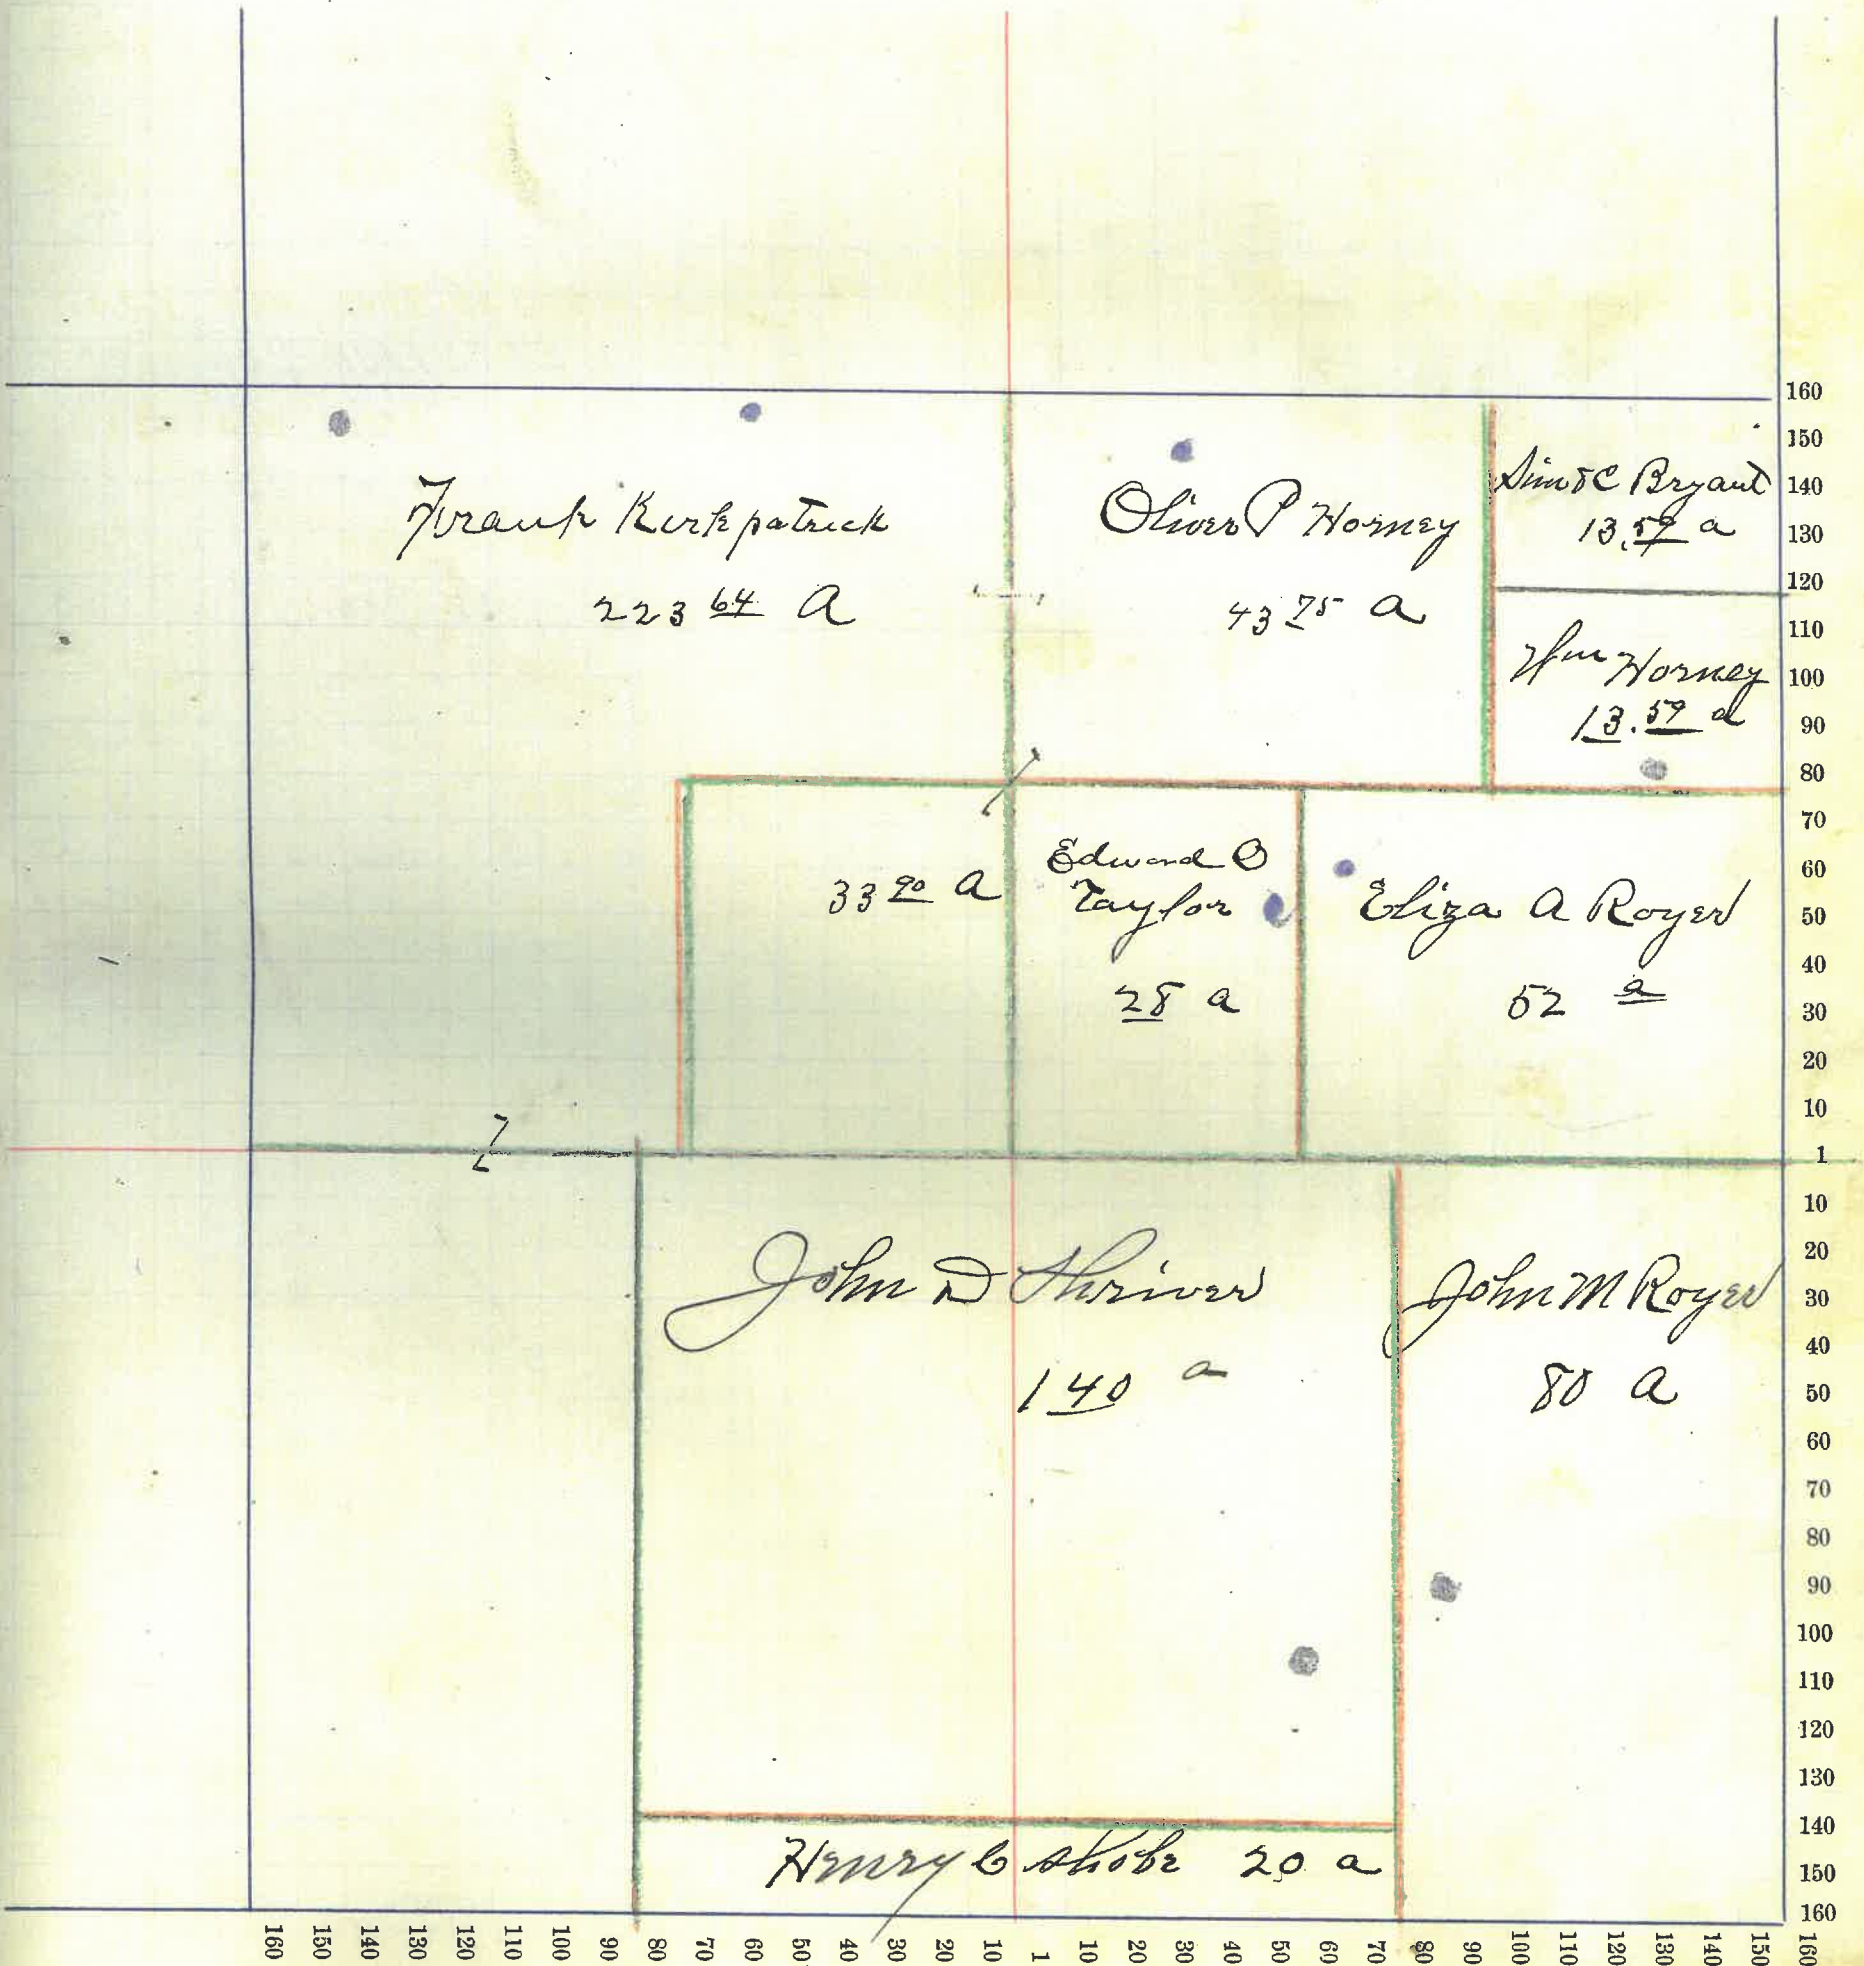 Frank Kirkpatrick
223 64 A
Oliver P Horney
43 75 a
Bryant
13.59 a
Wm Horney
13.59 a
33 90 A
Edward O
Taylor
28 a
Eliza A Royer
52 a
John D Shriver
140 a
John M Royer
80 A
Henry C Shobe 20 a
160
150
140
130
120
110
100
90
80
70
60
50
40
30
20
10
1
10
20
30
40
50
60
70
80
90
100
110
120
130
140
150
160
160 150 140 130 120 110 100 90 80 70 60 50 40 30 20 10 1 10 20 30 40 50 60 70 80 90 100 110 120 130 140 150 160